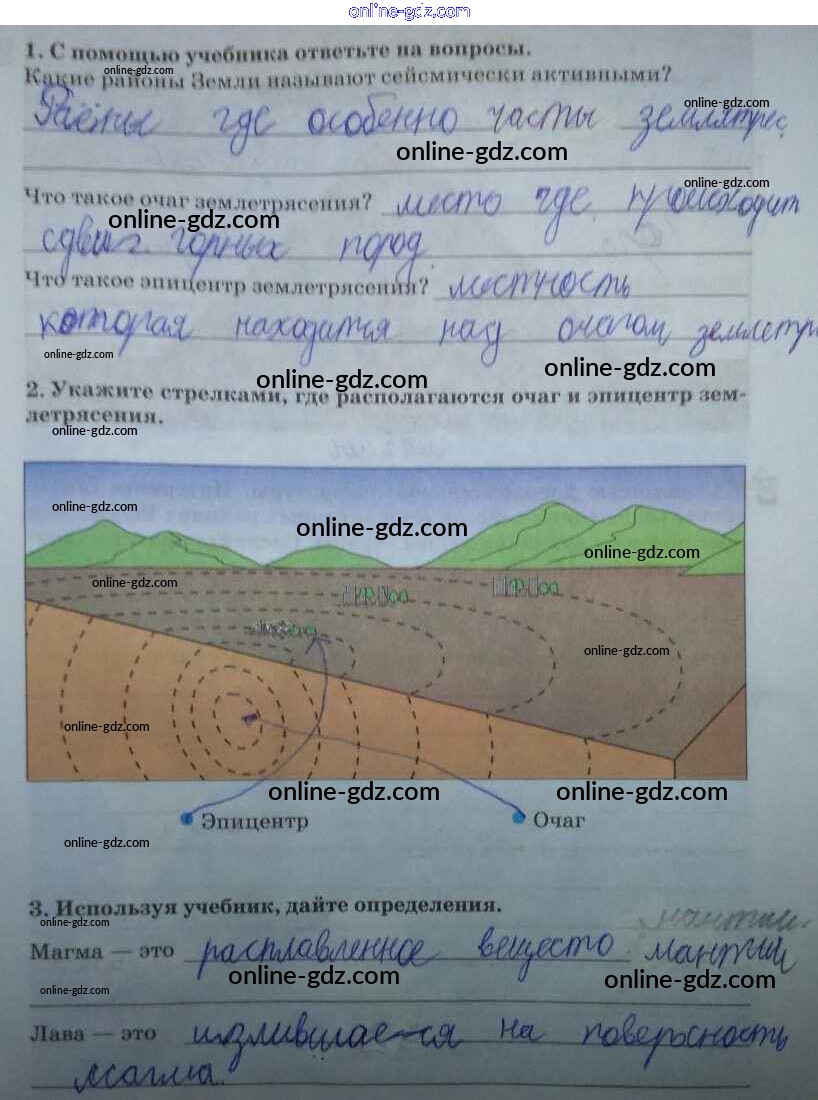 online-gdz.com
1. С помощью учебника ответьте на вопросы.
online-gdz.com
Какие районы Земли называют сейсмически активными?
online-gdz.com
где особенно часты землятрес
online-gdz.com
online-gdz.com
Что такое очаг землетрясения? место где происходит
online-gdz.com
сдвиг горных пород.
Что такое эпицентр землетрясения? местность
которая находится над очагом землетр
online-gdz.com
online-gdz.com
online-gdz.com
2. Укажите стрелками, где располагаются очаг и эпицентр зем-
летрясения.
online-gdz.com
online-gdz.com
online-gdz.com
online-gdz.com
online-gdz.com
online-gdz.com
online-gdz.com
online-gdz.com
online-gdz.com
Эпицентр
Очаг
online-gdz.com
3. Используя учебник, дайте определения.
online-gdz.com
мантии.
Магма — это расплавленное вещесто мантии
online-gdz.com
online-gdz.com
online-gdz.com
Лава — это излившаяся на поверсность
магма.